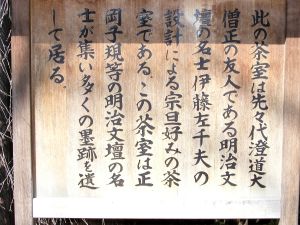 此の茶室は先々代澄道大
僧正の友人である明治文
壇の名士伊藤左千夫の
設計による宗旦好みの茶
室である。この茶室は正
岡子規等の明治文壇の名
士が集い多くの墨跡を遺
して居る。